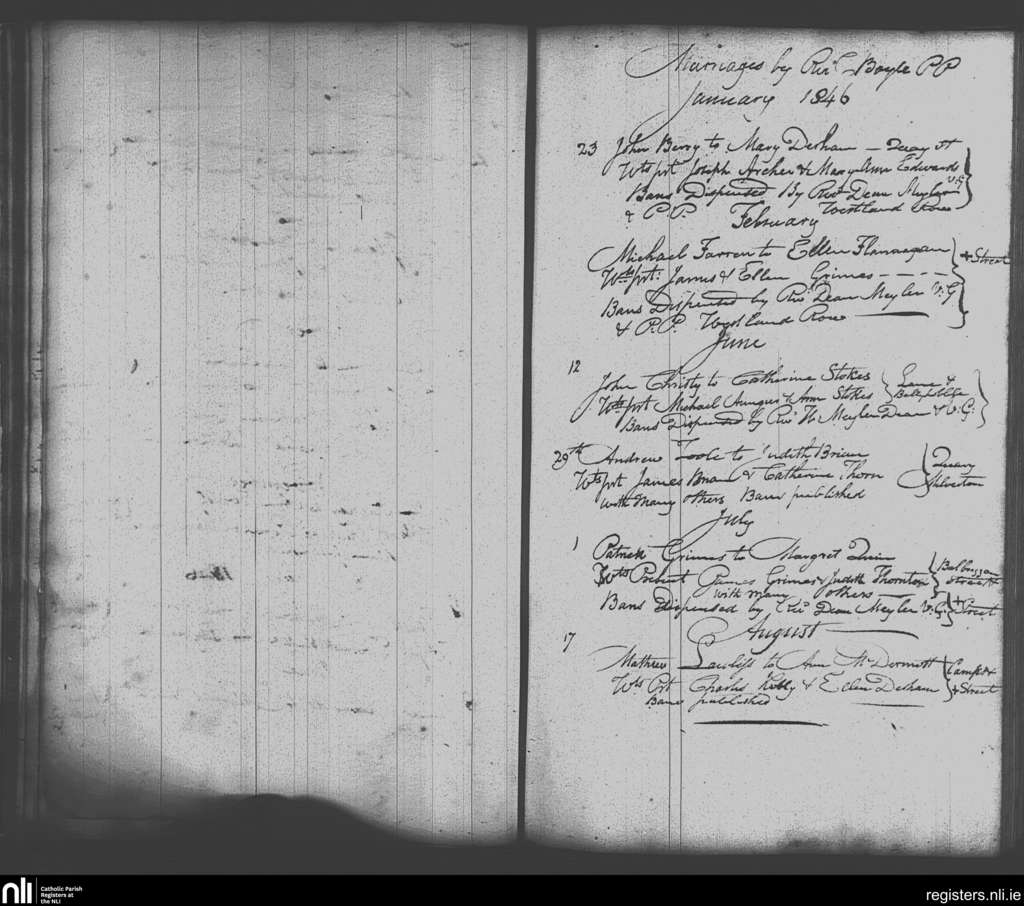 Marriages by Revd. Boyle PP
January 1846
23 John Berry to Mary Derham — Quay st
Wts prt Joseph Archer & Mary Ann Edward
Bans Dispensed By Revd. Dean Meyler V.G
& P.P. Westland Row
February
Michael Farren to Ellen Flannagan + Street
Wts prt. James & Ellen Grimes - - - -
Bans Dispensed by Revd. Dean Meyler V.G
& P.P. Westland Row
June
12
John Christy to Catherine Stokes Lane &
Wts prt Michael & Ann Stokes
Bans Dispensed by Revd. Meyler Dean & V.G.
29th Andrew Toole to Judith Brien Quary
Wts prt James & Catherine Thorn Milverton
with many others Bans published
July
1 Patrick Grimes to Margret Quin Balbriggan
Wts Present James Grimes & Judith Thornton Street &
with many others + Street
Bans dispensed by Revd. Dean Meyler V.G.
August
17
Mathew Lawless to Ann McDermott
Wts Prt Charles Kelly & Ellen Derham + Street
Bans published
nli
Catholic Parish
Registers at
the NLI
registers.nli.ie